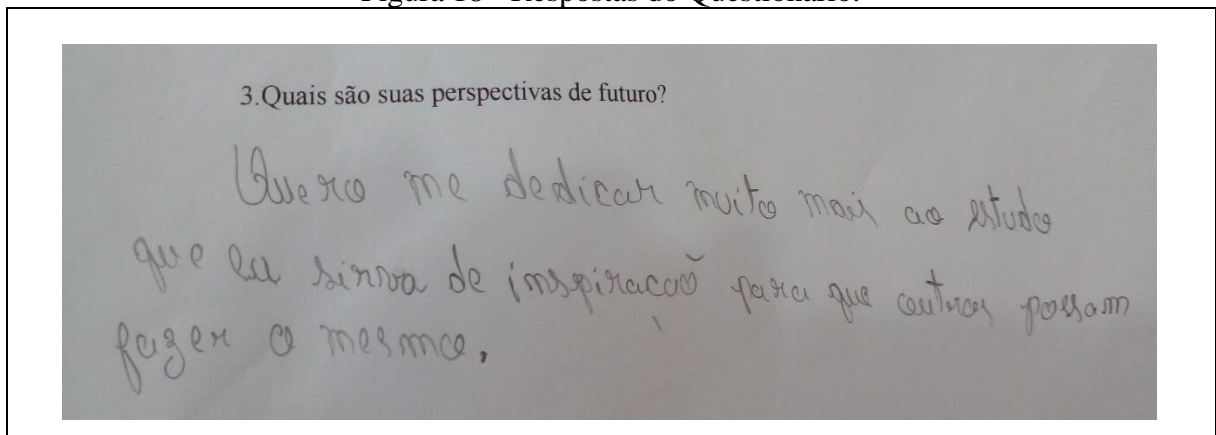 3.Quais são suas perspectivas de futuro?
Quero me dedicar muito mais ao estudo
que eu sirva de inspiracaõ para que outros possam
fazer o mesmo.